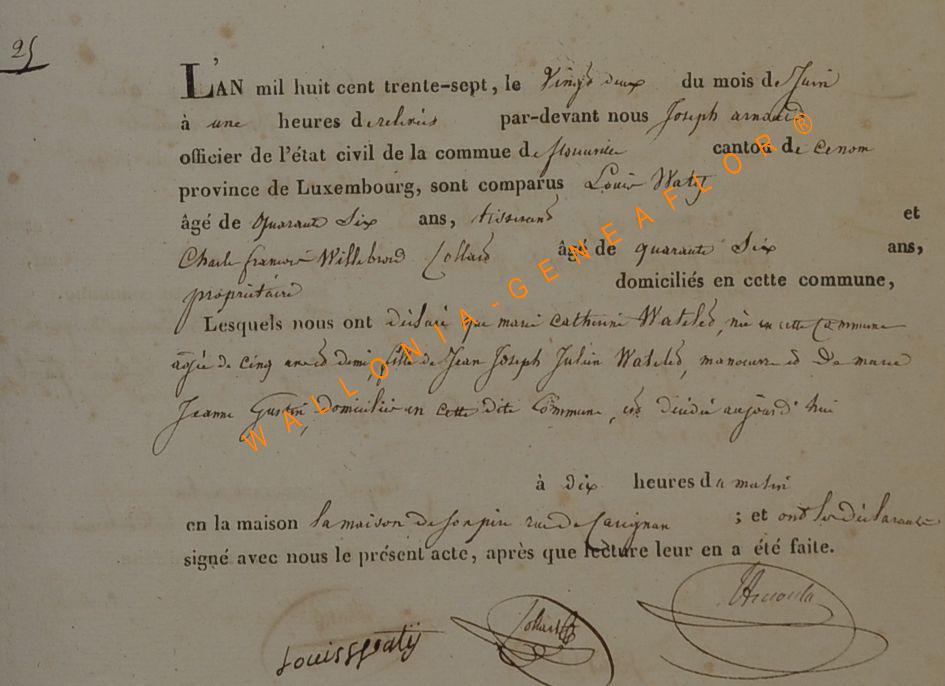 25
L'AN mil huit cent trente-sept, le Vingt deux du mois de Juin
à une heures de relevée par-devant nous Joseph arnould
officier de l'état civil de la commue de canton de
province de Luxembourg, sont comparus Louis Waty
âgé de quarante Six ans, tisserand et
Charle francois Willebrord Collard âgé de quarante Six ans,
propriétaire domiciliés en cette commune,
Lesquels nous ont déclaré que marie catherine Watelet, née en cette Commune
agée de cinq ans et demi, fille de Jean Joseph Julien Watelet, manoeuvre et De marie
Jeanne Gustin, domiciliés en cette dite Commune, est décédée aujourd'hui
à dix heures du matin
en la maison la maison de son père rue de Carignan ; et ont les déclarants
signé avec nous le présent acte, après que lecture leur en a été faite.
Louis Waty Collard JArnould
WALLONIA-GENEAFLOR®